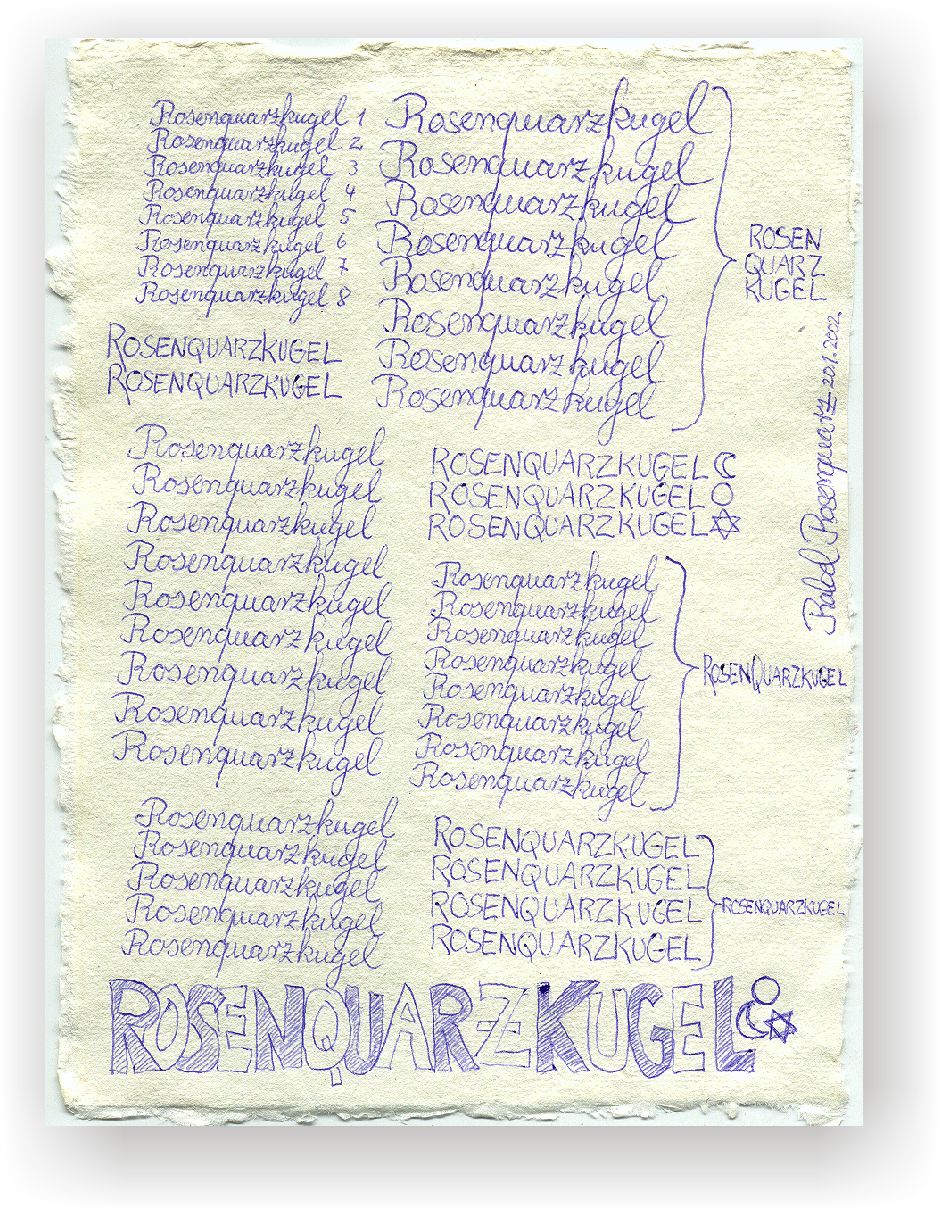 Rosenquarzkugel 1
Rosenquarzkugel 2
Rosenquarzkugel 3
Rosenquarzkugel 4
Rosenquarzkugel 5
Rosenquarzkugel 6
Rosenquarzkugel 7
Rosenquarzkugel 8
ROSENQUARZKUGEL
ROSENQUARZKUGEL
Rosenquarzkugel
Rosenquarzkugel
Rosenquarzkugel
Rosenquarzkugel
Rosenquarzkugel
Rosenquarzkugel
Rosenquarzkugel
Rosenquarzkugel
ROSEN
QUARZ
KUGEL
Rosenquarzkugel
Rosenquarzkugel
Rosenquarzkugel
Rosenquarzkugel
Rosenquarzkugel
Rosenquarzkugel
Rosenquarzkugel
Rosenquarzkugel
Rosenquarzkugel
ROSENQUARZKUGEL ☾
ROSENQUARZKUGEL ○
ROSENQUARZKUGEL ✡
Rosenquarz 20.1.2002
Rosenquarzkugel
Rosenquarzkugel
Rosenquarzkugel
Rosenquarzkugel
Rosenquarzkugel
Rosenquarzkugel
Rosenquarzkugel
Rosenquarzkugel
ROSENQUARZKUGEL
Rosenquarzkugel
Rosenquarzkugel
Rosenquarzkugel
Rosenquarzkugel
Rosenquarzkugel
ROSENQUARZKUGEL
ROSENQUARZKUGEL
ROSENQUARZKUGEL
ROSENQUARZKUGEL
ROSENQUARZKUGEL
ROSENQUARZKUGEL ○☾✡